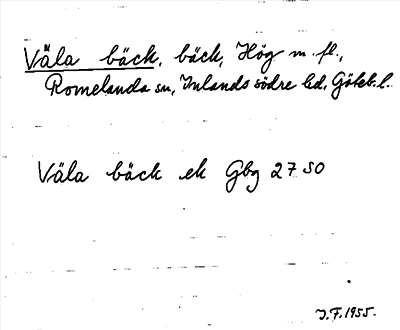 Väla bäck, bäck, Hög m. fl.,
Romelanda sn, Inlands södre hd, Göteb. l.
Väla bäck ek Gbg 27 SO
J.F. 1955.